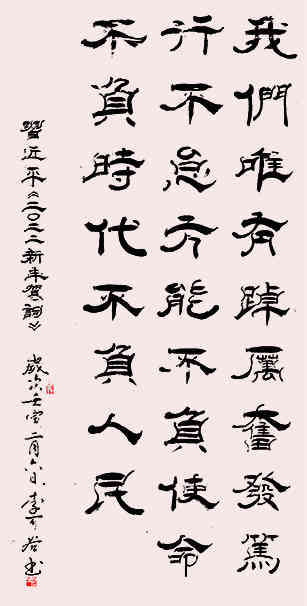 我們唯有踔厲奮發篤
行不怠方能不負使命
不負時代不負人民
習近平《二〇二二新年賀詞》 歲次壬寅二月六日李可书